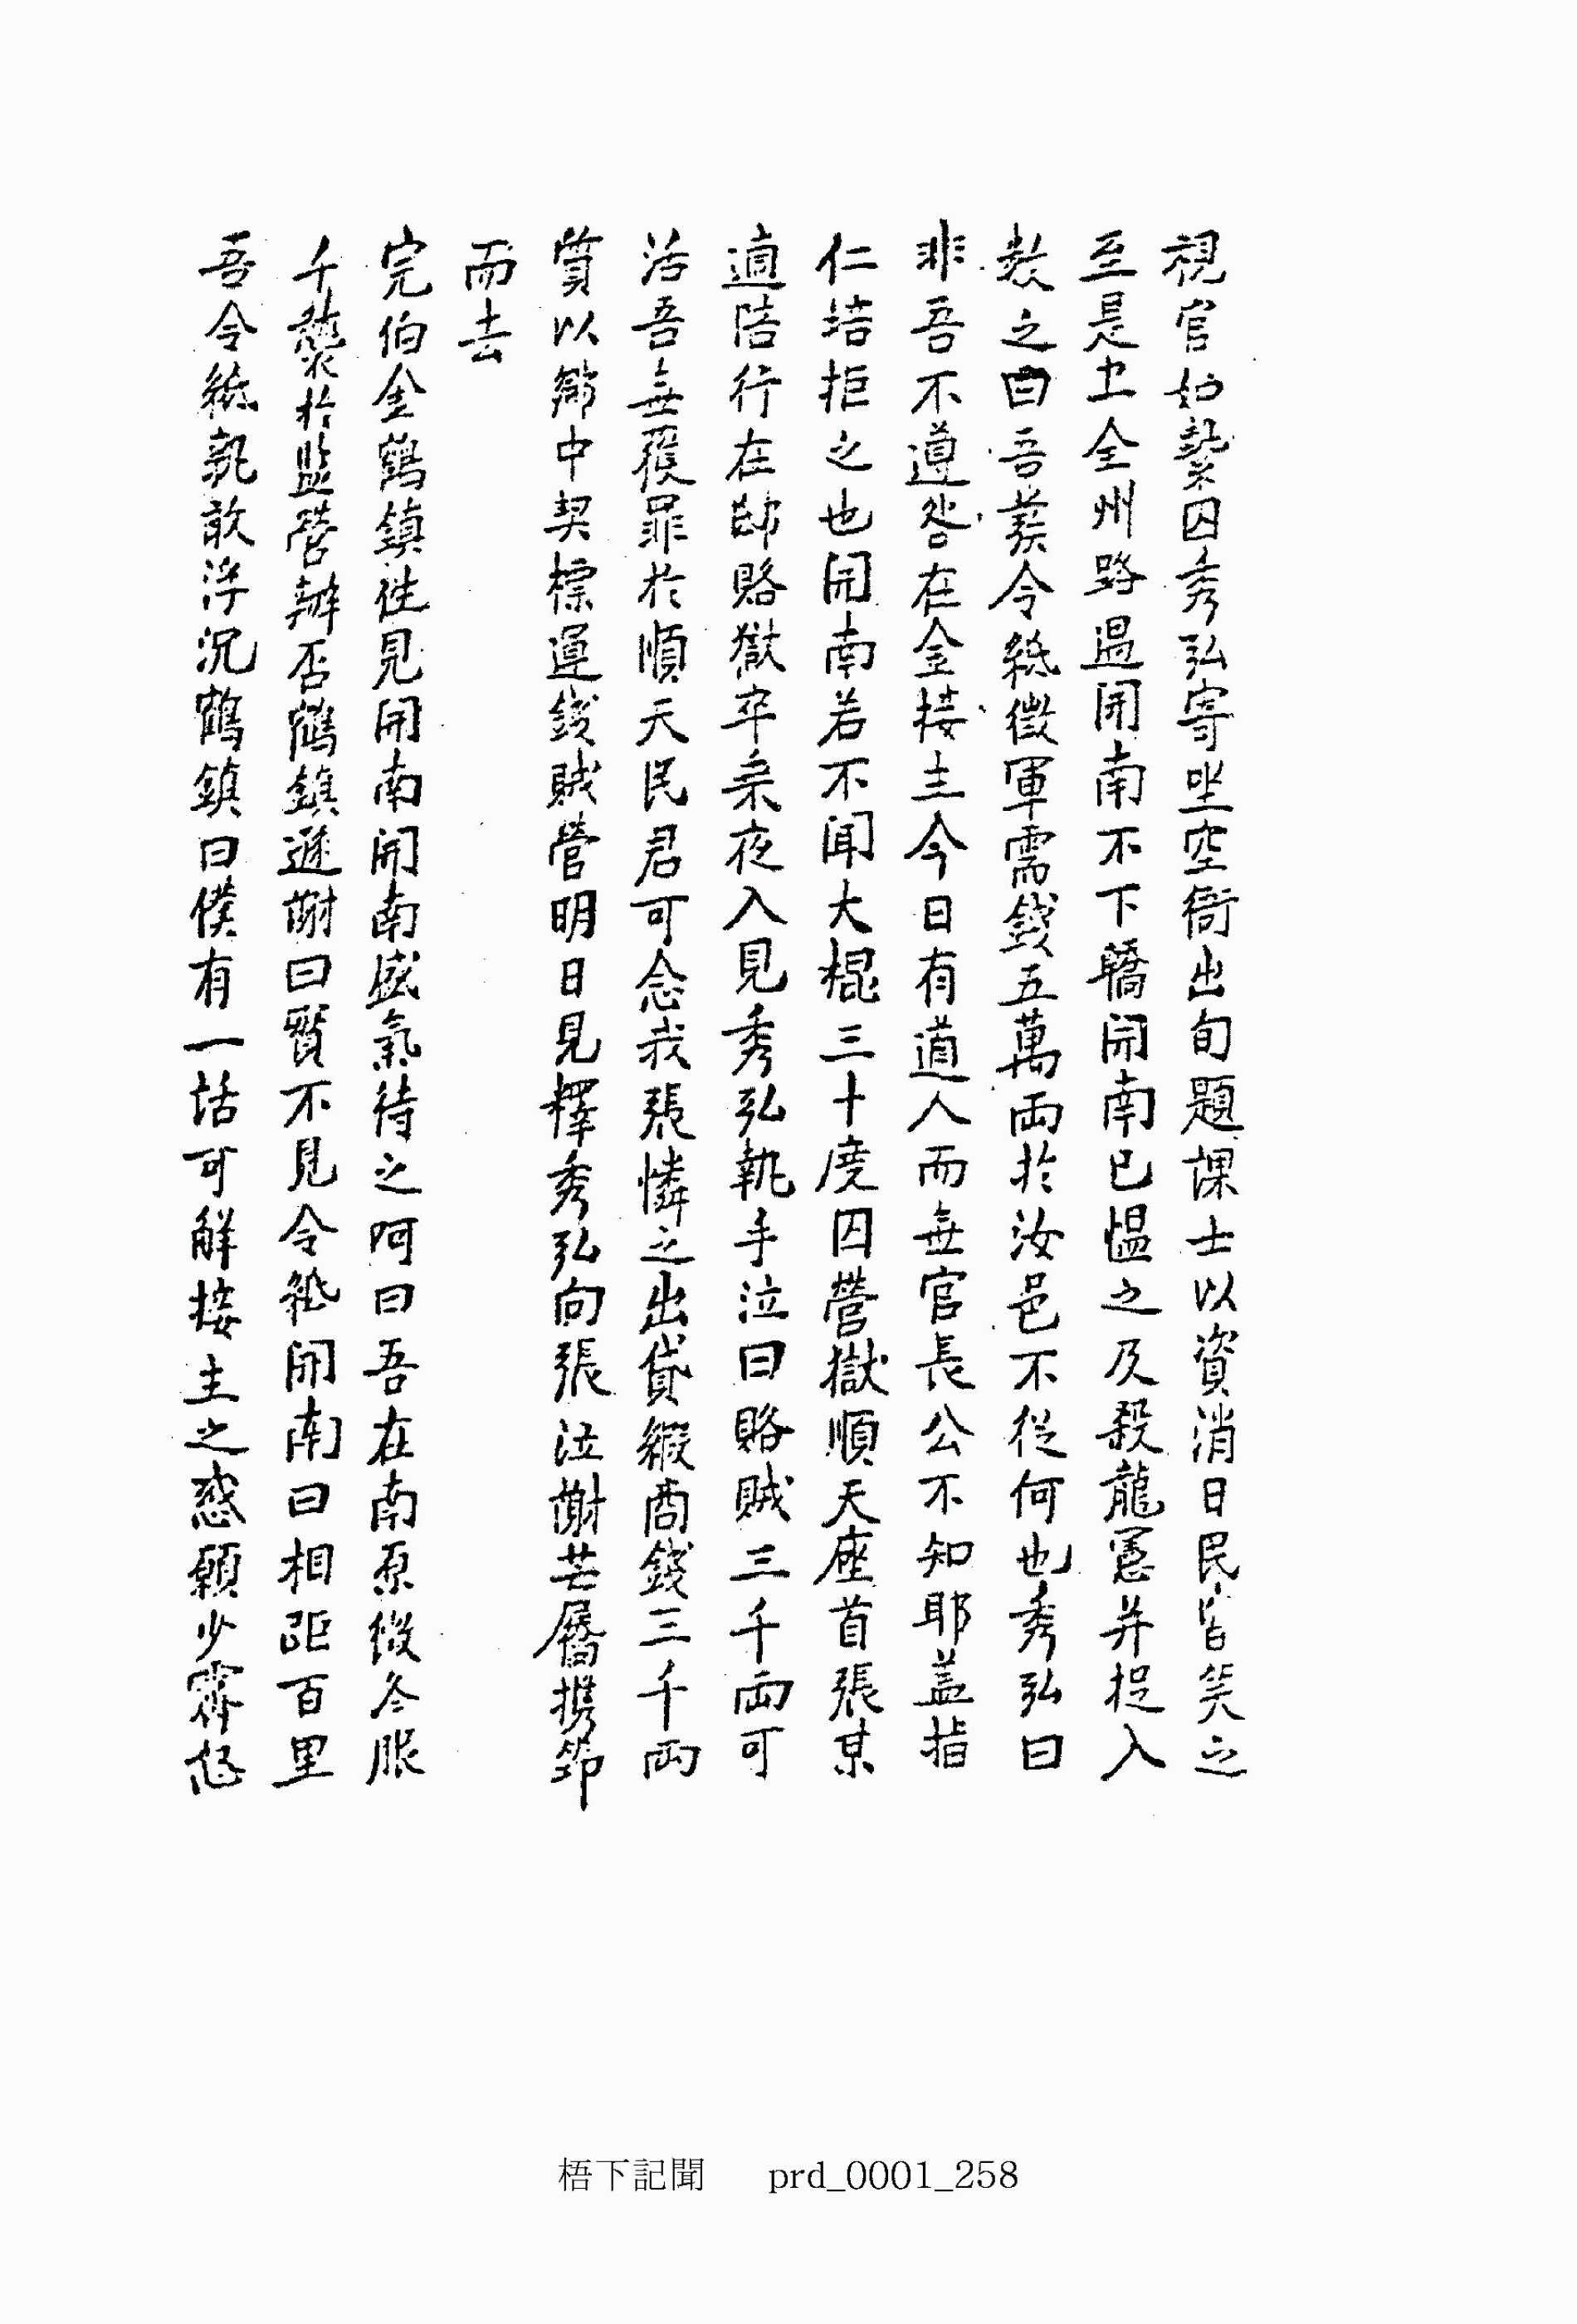 視官如縶囚秀弘寄坐空衙出旬題課士以資消日民皆笑之
至是上全州路過開南不下轎開南已慍之及殺龍憲幷捉入
數之曰吾業令紙徵軍需錢五萬兩於汝邑不從何也秀弘曰
非吾不遵咎在金接主今日有道人而無官長公不知耶盖指
仁培拒之也開南若不聞大棍三十度囚營獄順天座首張某
適陪行在邸賂獄卒乘夜入見秀弘執手泣曰賂賊三千兩可
活吾無獲罪於順天民君可念我張憐之出貸緞商錢三千兩
質以鄕中契標運錢賊營明日見釋秀弘向張泣謝芒屩携笻
而去
完伯金鶴鎭往見開南開南盛氣待之呵曰吾在南原徵冬服
千襲於監營辦否鶴鎭遜謝曰實不見令紙開南曰相距百里
吾令紙孰敢浮沉鶴鎭曰僕有一話可解接主之惑願少霽怒